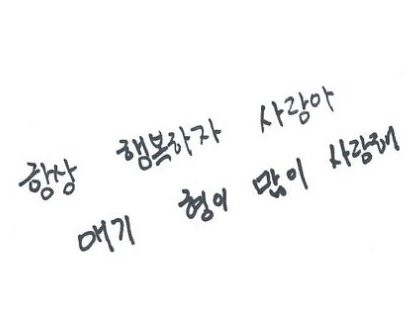 항상 행복하자 사랑아
애기 형이 많이 사랑해